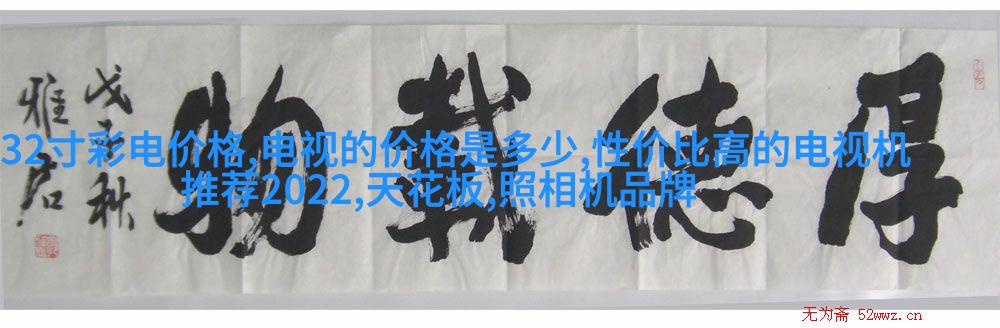 厚德載物
戊子秋
雅
32寸彩电价格,电视的价格是多少,性价比高的电视机
推荐2022,天花板,照相机品牌
无为斋 52wwz.cn